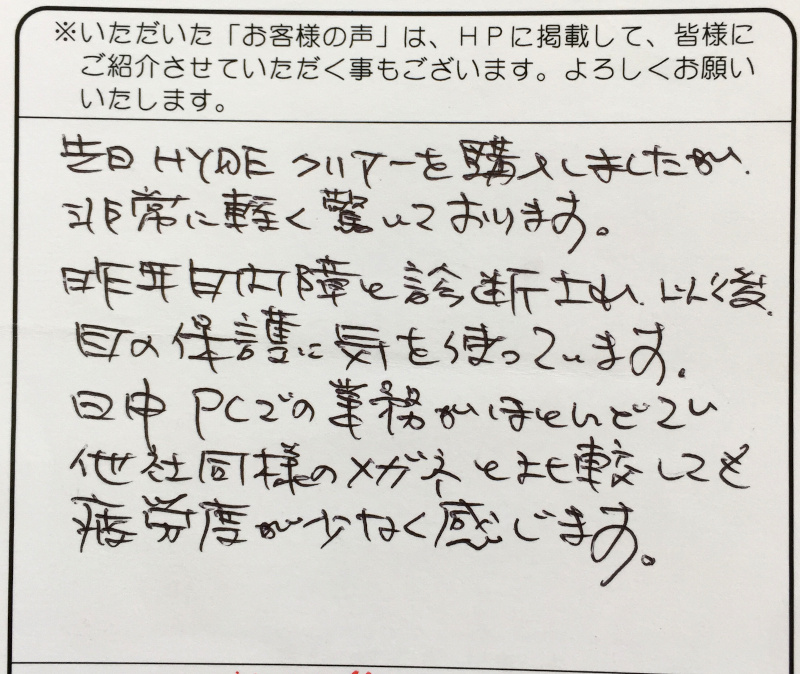 ※いただいた「お客様の声」は、ＨＰに掲載して、皆様に
ご紹介させていただく事もございます。よろしくお願い
いたします。
先日 HYDE クリアーを購入しましたが、
非常に軽く驚いております。
昨年白内障と診断され、以後
目の保護に気を使っています。
日中 PCでの業務がほとんどで
他社同様のメガネと比較しても
疲労度が少なく感じます。